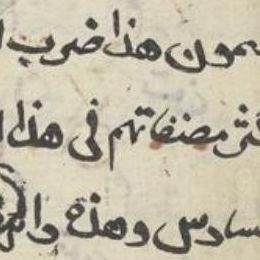 سمون هذا ضرب ا
كثر مصنفاتهم فى هذا ا
لسادس وهذه دا